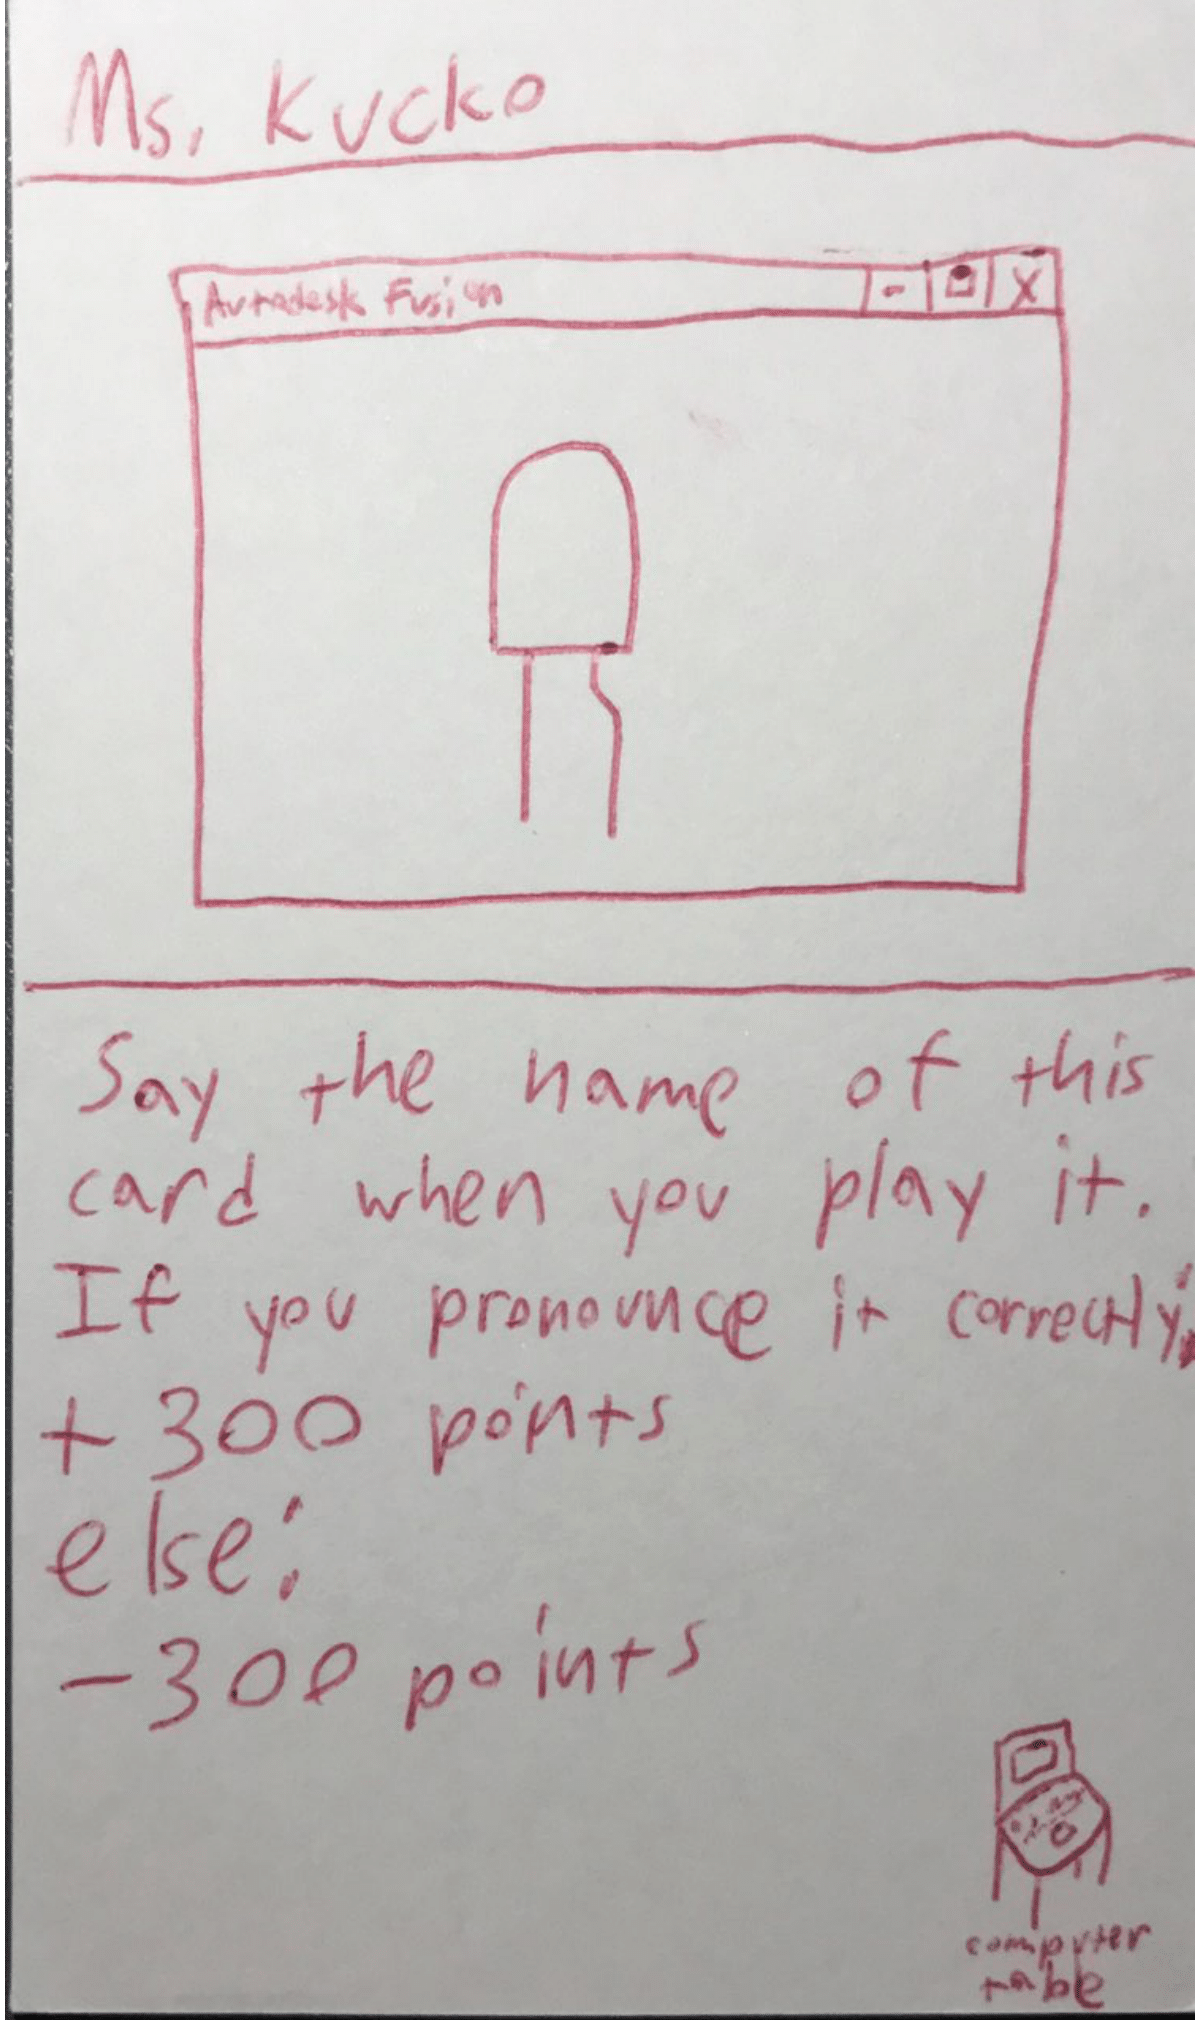 Ms. Kucko
Autodesk Fusion - X
Say the name of this
card when you play it.
If you pronounce it correctly:
+300 points
else:
-300 points
computer
table